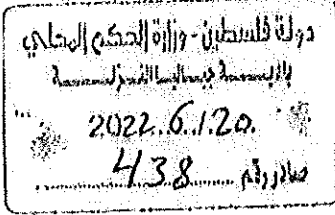 دولة فلسطين - وزارة الحكم المحلي
2022.6.1.20.
صادر رقم 438